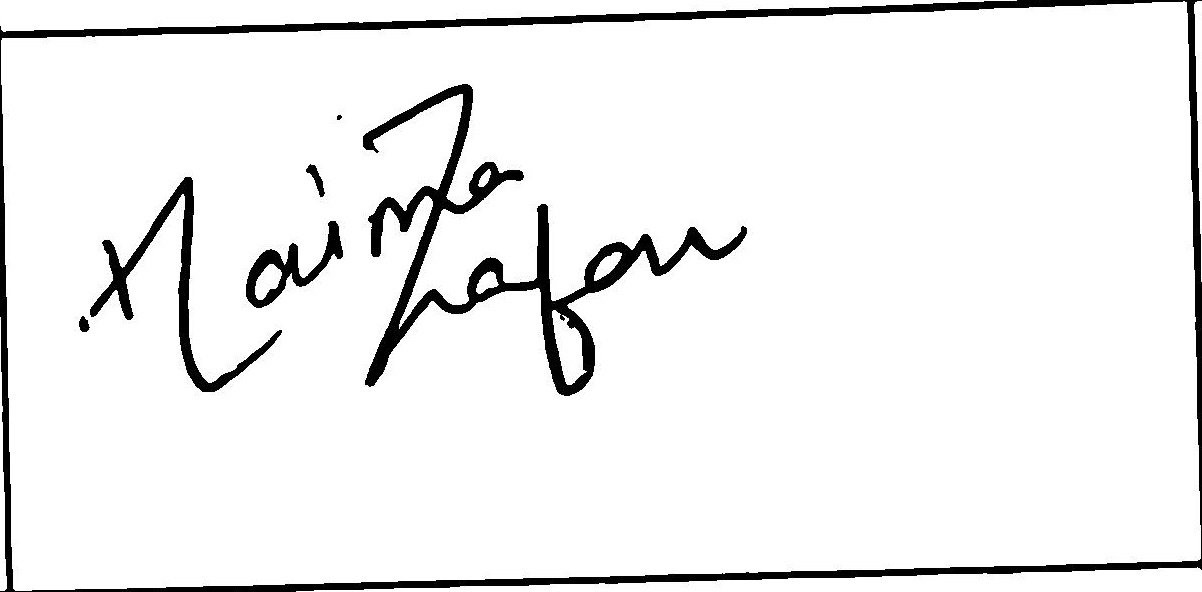 Naima
Zafar